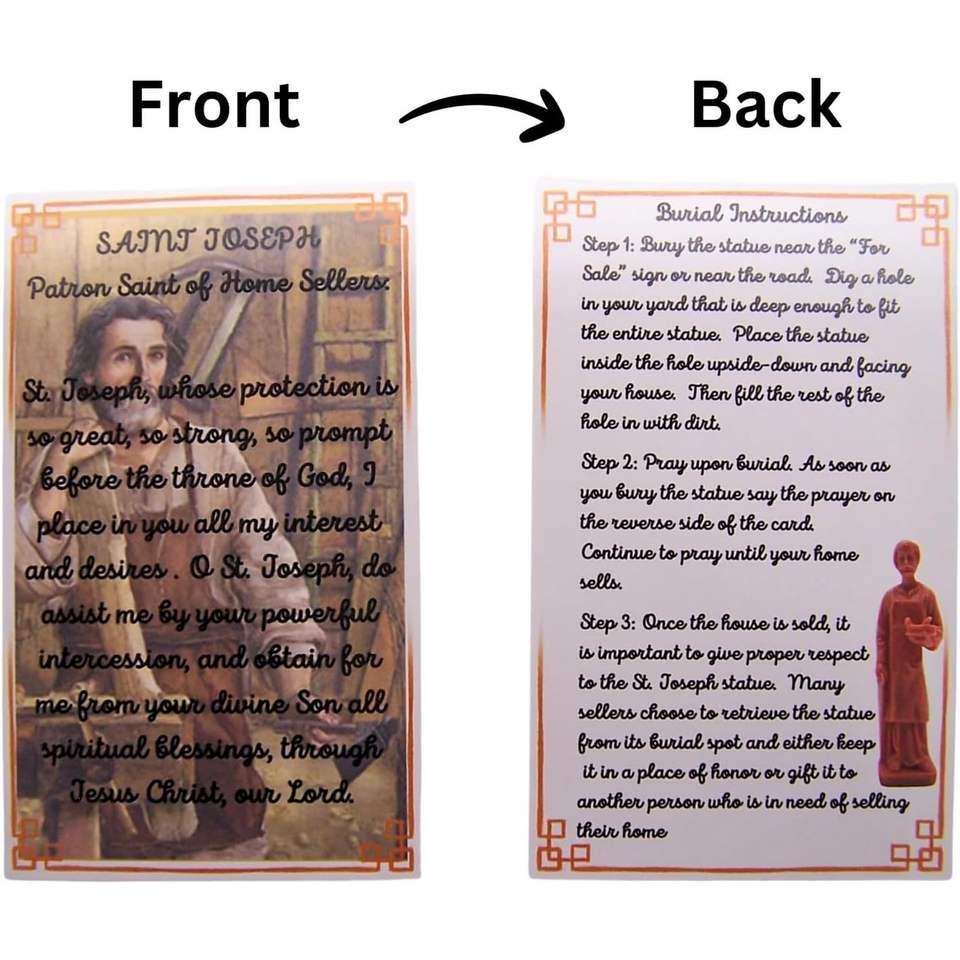 Front
Back
SAINT JOSEPH
Patron Saint of Home Sellers:
St. Joseph, whose protection is
so great, so strong, so prompt
before the throne of God, I
place in you all my interest
and desires . O St. Joseph, do
assist me by your powerful
intercession, and obtain for
me from your divine Son all
spiritual blessings, through
Jesus Christ, our Lord.
Burial Instructions
Step 1: Bury the statue near the “For
Sale” sign or near the road.  Dig a hole
in your yard that is deep enough to fit
the entire statue.  Place the statue
inside the hole upside-down and facing
your house.  Then fill the rest of the
hole in with dirt.
Step 2: Pray upon burial. As soon as
you bury the statue say the prayer on
the reverse side of the card.
Continue to pray until your home
sells.
Step 3: Once the house is sold, it
is important to give proper respect
to the St. Joseph statue.  Many
sellers choose to retrieve the statue
from its burial spot and either keep
it in a place of honor or gift it to
another person who is in need of selling
their home